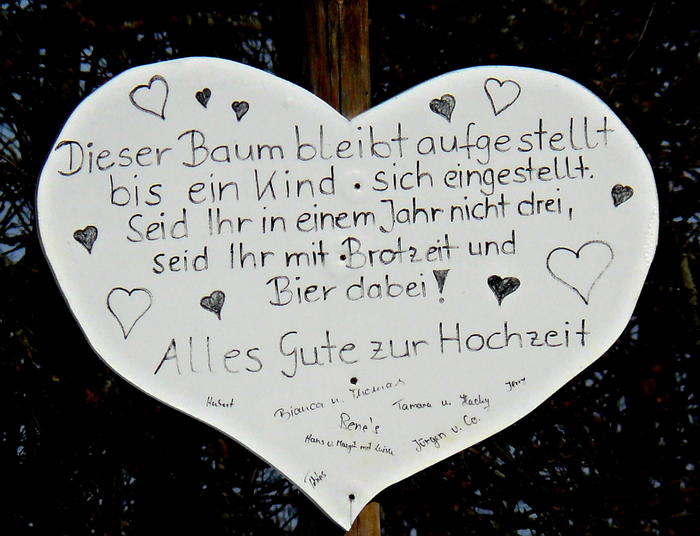 Dieser Baum bleibt aufgestellt
bis ein Kind sich eingestellt.
Seid Ihr in einem Jahr nicht drei,
seid Ihr mit Brotzeit und
Bier dabei!
Alles Gute zur Hochzeit
Hubert Bianca u. Thomas Tamara u. Hachy Jerry
Rene's
Hans u. Margit mit Luisa Jürgen u. Co.